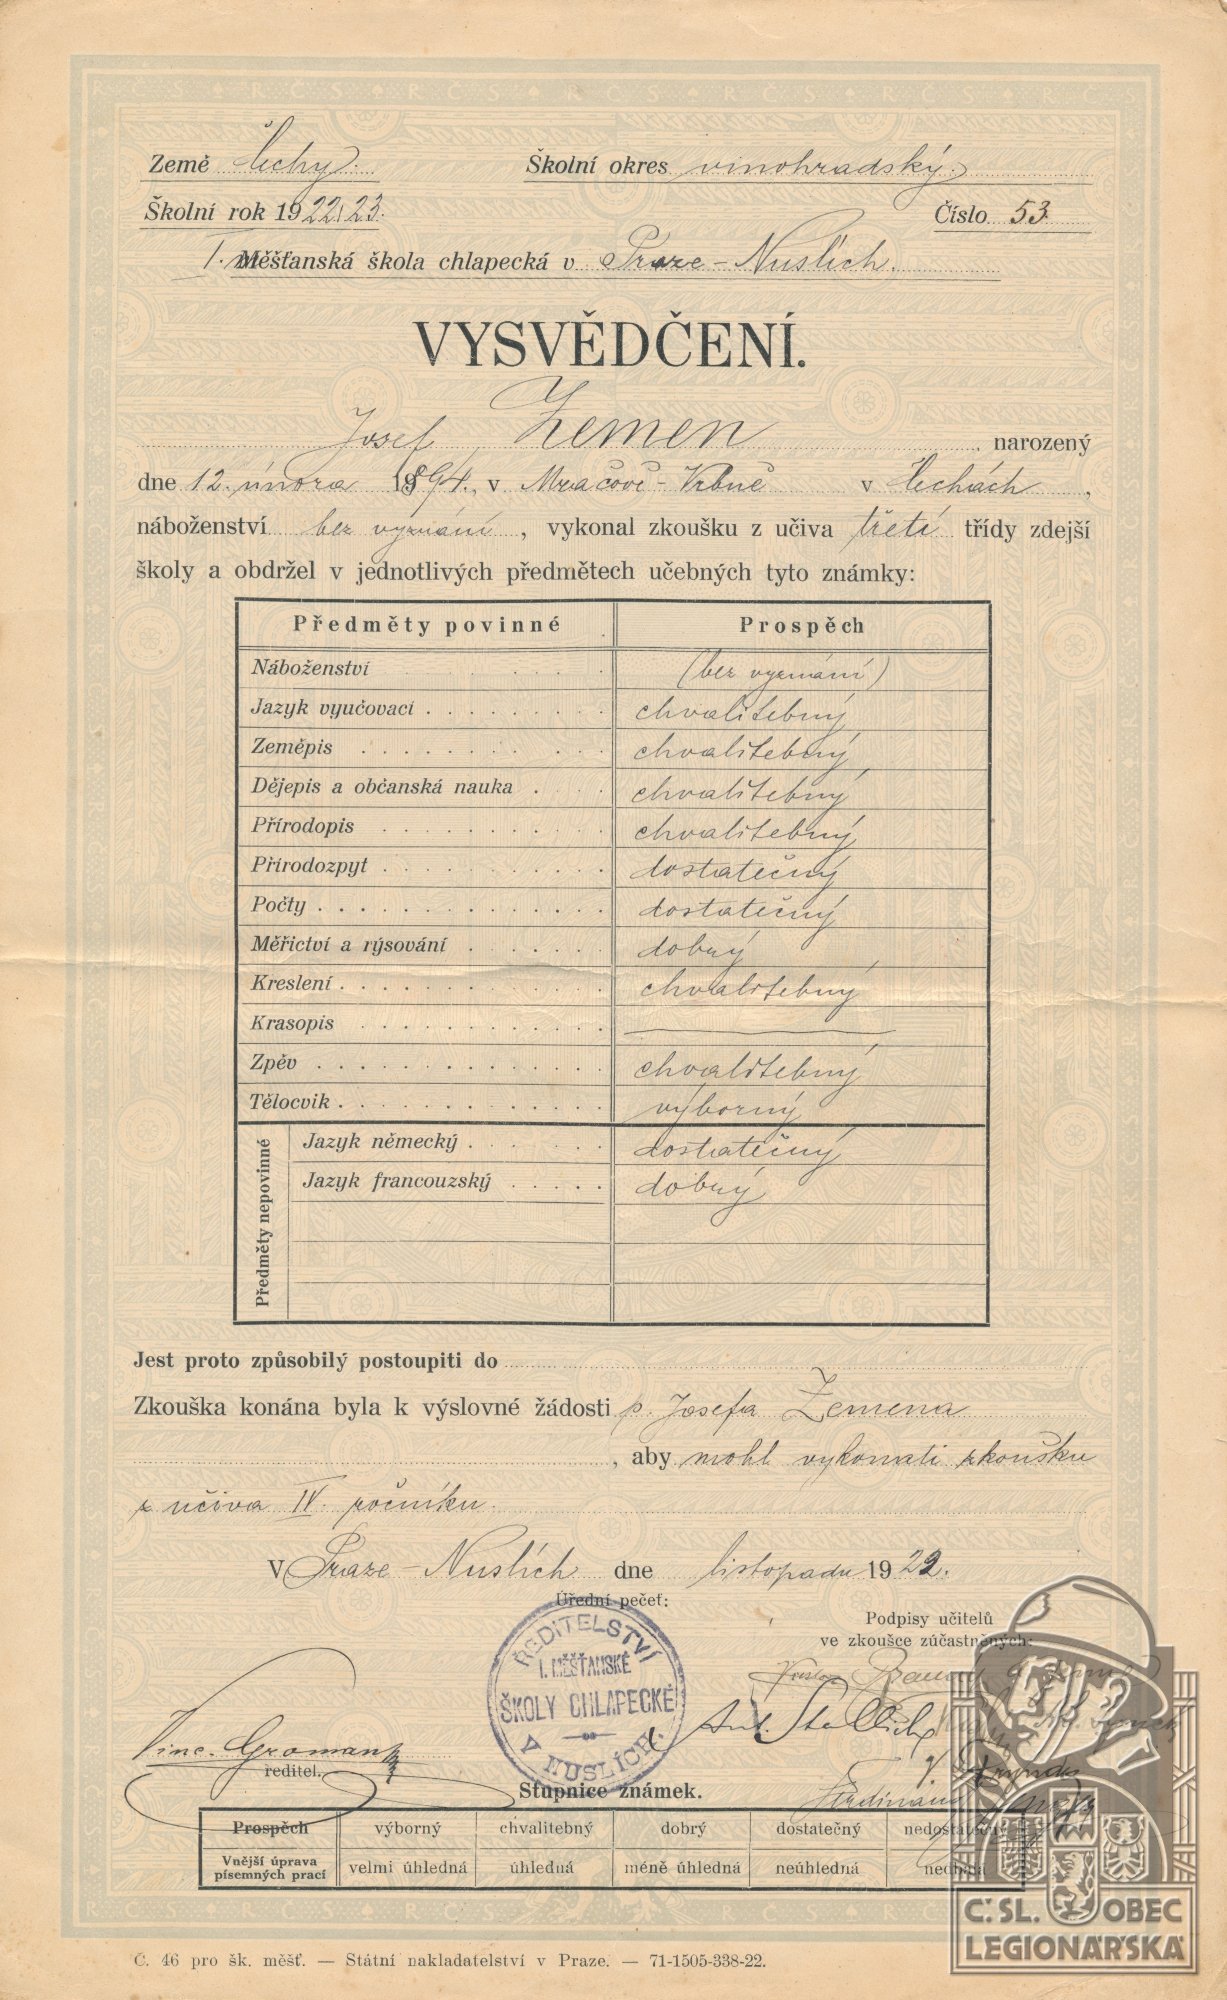 Země Čechy. Školní okres vinohradský
Školní rok 1922/23. Číslo 53
I. Měšťanská škola chlapecká v Praze-Nuslích.
VYSVĚDČENÍ.
Josef Zemen, narozený
dne 12. února 1894., v Mračově-Vrbně v Čechách,
náboženství bez vyznání, vykonal zkoušku z učiva třetí třídy zdejší
školy a obdržel v jednotlivých předmětech učebných tyto známky:
Předměty povinné Prospěch
Náboženství (bez vyznání)
Jazyk vyučovací chvalitebný
Zeměpis chvalitebný
Dějepis a občanská nauka chvalitebný
Přírodopis chvalitebný
Přírodozpyt dostatečný
Počty dostatečný
Měřictví a rýsování dobrý
Kreslení chvalitebný
Krasopis
Zpěv chvalitebný
Tělocvik výborný
Předměty nepovinné
Jazyk německý dostatečný
Jazyk francouzský dobrý
Jest proto způsobilý postoupiti do
Zkouška konána byla k výslovné žádosti p. Josefa Zemena
, aby mohl vykonati zkoušku
z učiva IV. ročníku.
V Praze-Nuslích dne listopadu 1922.
Úřední pečeť:
Podpisy učitelů
ve zkoušce zúčastněných:
ŘEDITELSTVÍ
I. MĚŠŤANSKÉ
ŠKOLY CHLAPECKÉ
V NUSLÍCH.
Vinc. Groman
ředitel.
Stupnice známek.
Prospěch výborný chvalitebný dobrý dostatečný nedostatečný
Vnější úprava písemných prací velmi úhledná úhledná méně úhledná neúhledná nedbalá
Č. 46 pro šk. měšť. — Státní nakladatelství v Praze. — 71-1505-338-22.
Č. SL. OBEC
LEGIONÁŘSKÁ